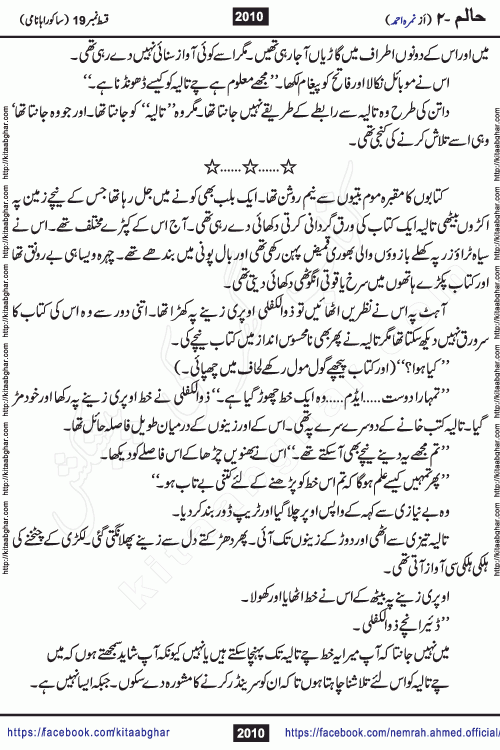 قسط نمبر 19 (ساکورا ہانامی)
2010
حالم -۲ (از نمرہ احمد)
میں اور اس کے دونوں اطراف میں گاڑیاں آ جا رہی تھیں۔ مگر اسے کوئی آواز سنائی نہیں دے رہی تھی۔
اس نے موبائل نکالا اور فاتح کو پیغام لکھا۔ ”مجھے معلوم ہے چے تالیہ کو کیسے ڈھونڈنا ہے۔“
داتن کی طرح وہ تالیہ سے رابطے کے طریقے نہیں جانتا تھا۔ مگر وہ ”تالیہ“ کو جانتا تھا۔ اور جو وہ جانتا تھا‘
وہی اسے تلاش کرنے کی کنجی تھی۔
☆......☆......☆
کتابوں کا مقبرہ موم بتیوں سے نیم روشن تھا۔ ایک بلب بھی کونے میں جل رہا تھا جس کے نیچے زمین پہ
اکڑوں بیٹھی تالیہ ایک کتاب کی ورق گردانی کرتی دکھائی دے رہی تھی۔ آج اس کے کپڑے مختلف تھے۔ اس نے
سیاہ ٹراؤزر پہ کھلے بازوؤں والی بھوری قمیض پہن رکھی تھی اور بال پونی میں بندھے تھے۔ چہرہ ویسا ہی بے رونق تھا
اور کتاب پکڑے ہاتھوں میں سرخ یاقوتی انگوٹھی دکھائی دیتی تھی۔
آہٹ پہ اس نے نظریں اٹھائیں تو ذوالکفلی اوپری زینے پہ کھڑا تھا۔ اتنی دور سے وہ اس کی کتاب کا
سرورق نہیں دیکھ سکتا تھا مگر تالیہ نے پھر بھی نامحسوس انداز میں کتاب نیچے کی۔
”کیا ہوا؟“ (اور کتاب پیچھے گول مول رکھے لحاف میں چھپائی۔)
”تمہارا دوست.....ایڈم.....وہ ایک خط چھوڑ گیا ہے۔“ ذوالکفلی نے خط اوپری زینے پہ رکھا اور خود مڑ
گیا۔ تالیہ کتب خانے کے دوسرے سرے پہ تھی۔ اس کے اور زینوں کے درمیان طویل فاصلہ حائل تھا۔
”تم مجھے یہ دینے نیچے بھی آ سکتے تھے۔“ اس نے بھنویں چڑھا کے اس فاصلے کو دیکھا۔
”پھر تمہیں کیسے علم ہو گا کہ تم اس خط کو پڑھنے کے لئے کتنی بے تاب ہو۔“
وہ بے نیازی سے کہہ کے واپس اوپر چلا گیا اور ٹریپ ڈور بند کر دیا۔
تالیہ تیزی سے اٹھی اور دوڑ کے زینوں تک آئی۔ پھر دھڑکتے دل سے زینے پھلانگتی گئی۔ لکڑی کے چٹخنے کی
ہلکی ہلکی سی آواز آتی تھی۔
اوپری زینے پہ بیٹھ کے اس نے خط اٹھایا اور کھولا۔
”ڈئیر انچے ذوالکفلی۔
میں نہیں جانتا کہ آپ میرا یہ خط چے تالیہ تک پہنچا سکتے ہیں یا نہیں کیونکہ آپ شاید سمجھتے ہوں کہ میں
چے تالیہ کو اس لئے تلاشنا چاہتا ہوں تا کہ ان کو سرینڈر کرنے کا مشورہ دے سکوں۔ جبکہ ایسا نہیں ہے۔
https://facebook.com/kitaabghar
2010
https://facebook.com/nemrah.ahmed.official/
http://kitaabghar.com http://kitaabghar.com http://kitaabghar.com http://kitaabghar.com http://kitaabghar.com
http://kitaabghar.com http://kitaabghar.com http://kitaabghar.com http://kitaabghar.com http://kitaabghar.com